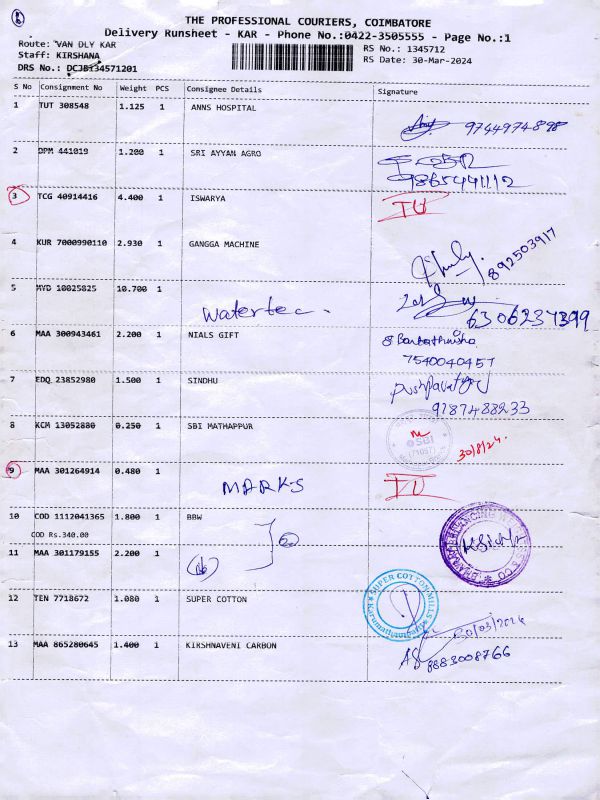 THE PROFESSIONAL COURIERS, COIMBATORE
Delivery Runsheet - KAR - Phone No.:0422-3505555 - Page No.:1
Route: VAN DLY KAR
RS No.: 1345712
Staff: KIRSHANA
RS Date: 30-Mar-2024
DRS No.: DCJB134571201
S No Consignment No Weight PCS Consignee Details Signature
1 TUT 308548 1.125 1 ANNS HOSPITAL
9744974898
2 DPM 441019 1.200 1 SRI AYYAN AGRO
9865441112
3 TCG 40914416 4.400 1 ISWARYA
4 KUR 7000990110 2.930 1 GANGGA MACHINE
892503917
5 MYD 10025825 10.700 1 Watertec.
6306237399
6 MAA 300943461 2.200 1 NIALS GIFT
7540040457
7 EDQ 23852980 1.500 1 SINDHU
9787488233
8 KCM 13052880 0.250 1 SBI MATHAPPUR
SBI
30/8/24.
9 MAA 301264914 0.480 1 MARKS
10 COD 1112041365 1.800 1 BBW
COD Rs.340.00
11 MAA 301179155 2.200 1
12 TEN 7718672 1.080 1 SUPER COTTON
SUPER COTTON MILLS
30/03/2024
13 MAA 865280645 1.400 1 KIRSHNAVENI CARBON
8883008766